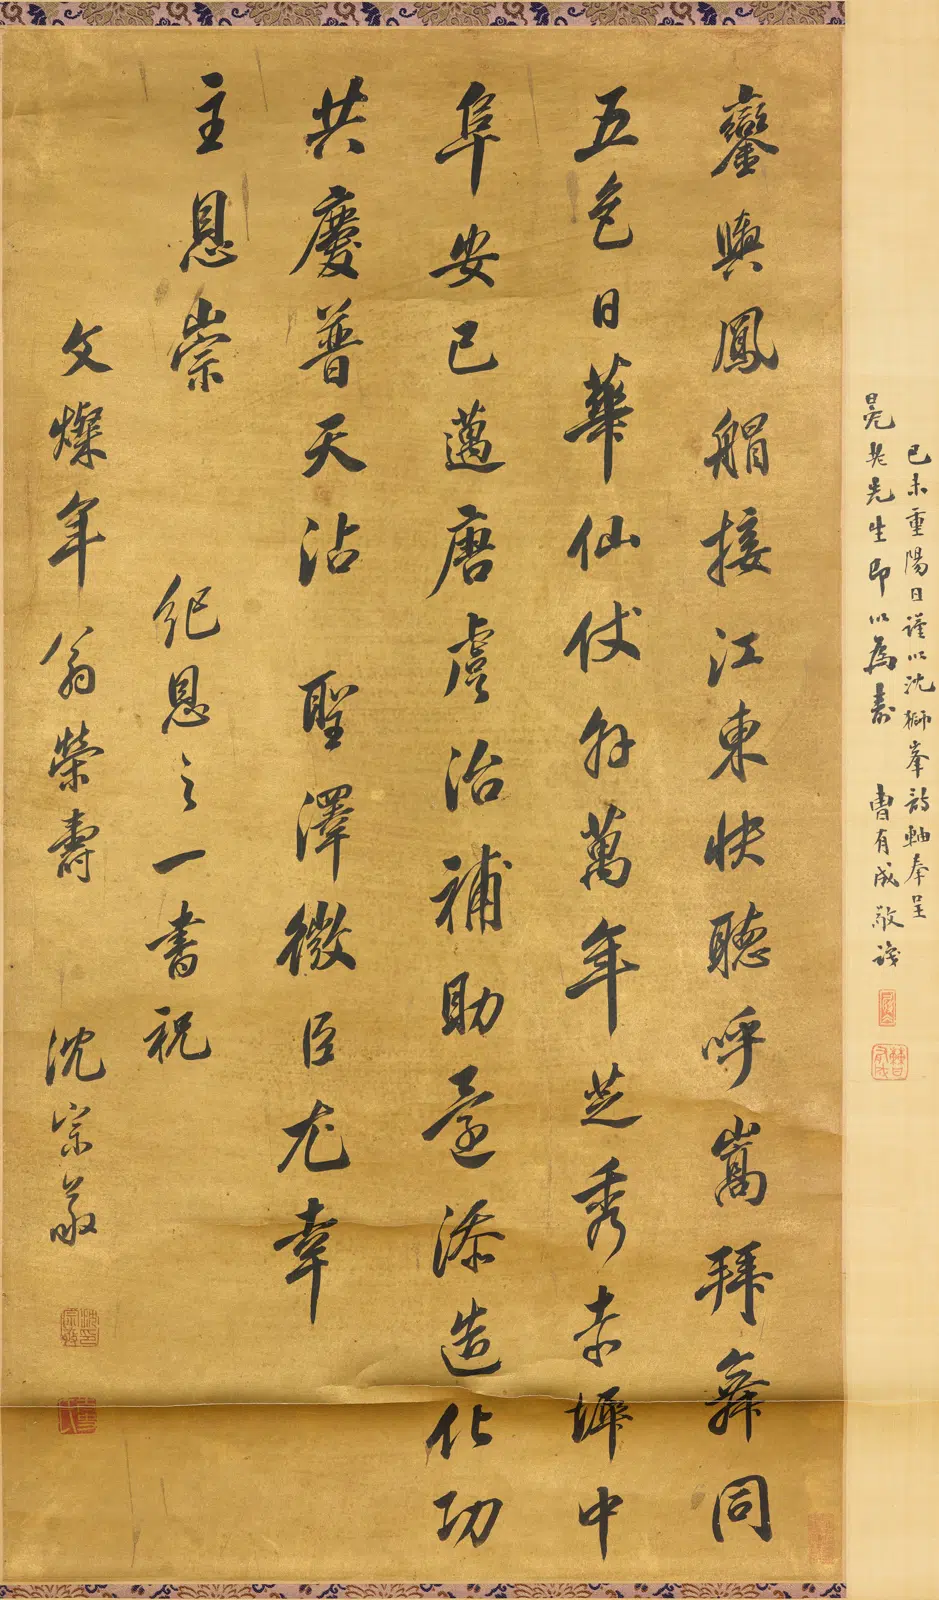 己未重陽日謹以沈獅峯詩軸奉呈
晃老先生即以為壽 曹有成敬識
鑾輿鳳艒接江東快聽呼嵩拜舞同
五色日華仙仗外萬年芝秀赤墀中
阜安已邁唐虞治補助還添造化功
共慶普天沾 聖澤微臣尤幸
主恩崇
紀恩之一書祝
文燦年翁榮壽 沈宗敬